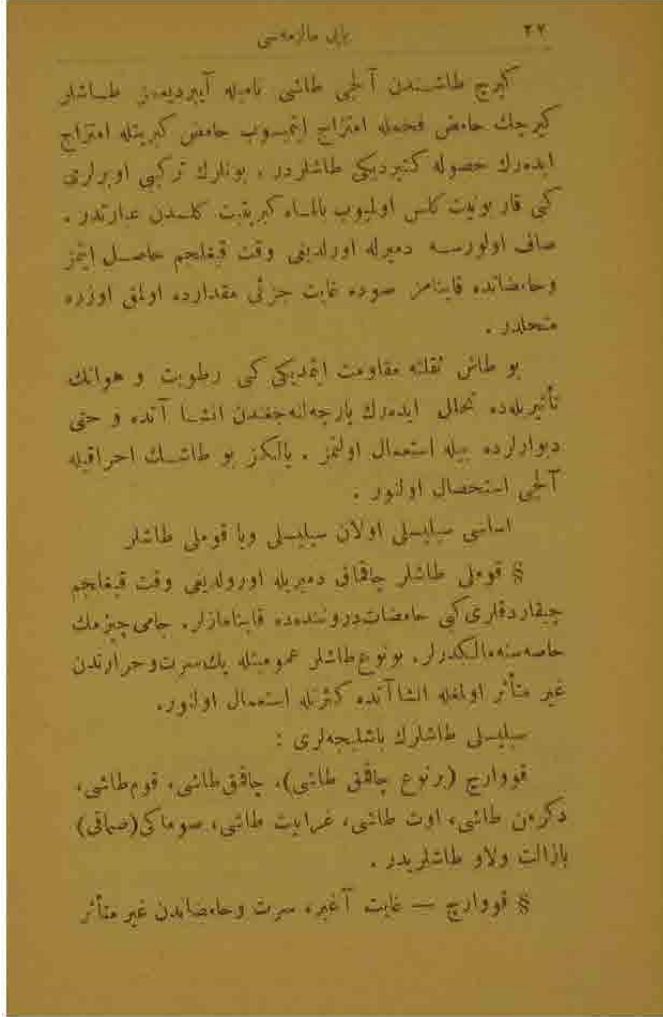 ٢٧
یاپی مالزمه‌سی
كیرج طاشـندن آلچی طاشی نامیله آییردیغمز طـاشلر
كیرجك حامض فحمله امتزاج ایتمیـوب حامض كبریتله امتزاج
ایده‌رك حصوله كتیردیكی طاشلردر . بونلرك تركیبی اوبرلری
كبی قاربونیت كلس اولمیوب بالعكس كبریتیت كلسدن عبارتدر .
صاف اولورسـه دمیرله اورلدیغی وقت قیغلجم حاصـل ایتمز
وحامضاتده قاینامز صوده غایت جزئی مقدارده اولمق اوزره
منحلدر .
بو طاش ثقلته مقاومت ایتمدیكی كبی رطوبت و هوانك
تأثیریله‌ده تحلل ایده‌رك پارچه‌لنه‌جغندن انشـا آتده و حتی
دیوارلرده بیله استعمال اولنمز . یالكز بو طاشـك احراقیله
آلچی استحصال اولنور .
اساسی سیلیسلی اولان سیلیسلی ویا قوملی طاشلر
§ قوملی طاشلر چاقماق دمیریله اورولدیغی وقت قیغلجم
چیقاردقلری كبی حامضات دروننده‌ده قاینامازلر . جامی چیزمك
خاصه‌سنه مالكدرلر . بونوع طاشلر عمومیتله پك سرت وحرارتدن
غیر متأثر اولمغله انشا آتده كثرتله استعمال اولنور .
سیلیسلی طاشلرك باشلیجه‌لری :
قووارچ (برنوع چاقمق طاشی)، چاقمق طاشی، قوم طاشی،
دكرمن طاشی، اوت طاشی، غرانیت طاشی، سوماكی (صماقی)
بازالت ولاو طاشلریدر .
§ قووارچ — غایت آغیر، سرت وحامضاتدن غیر متأثر